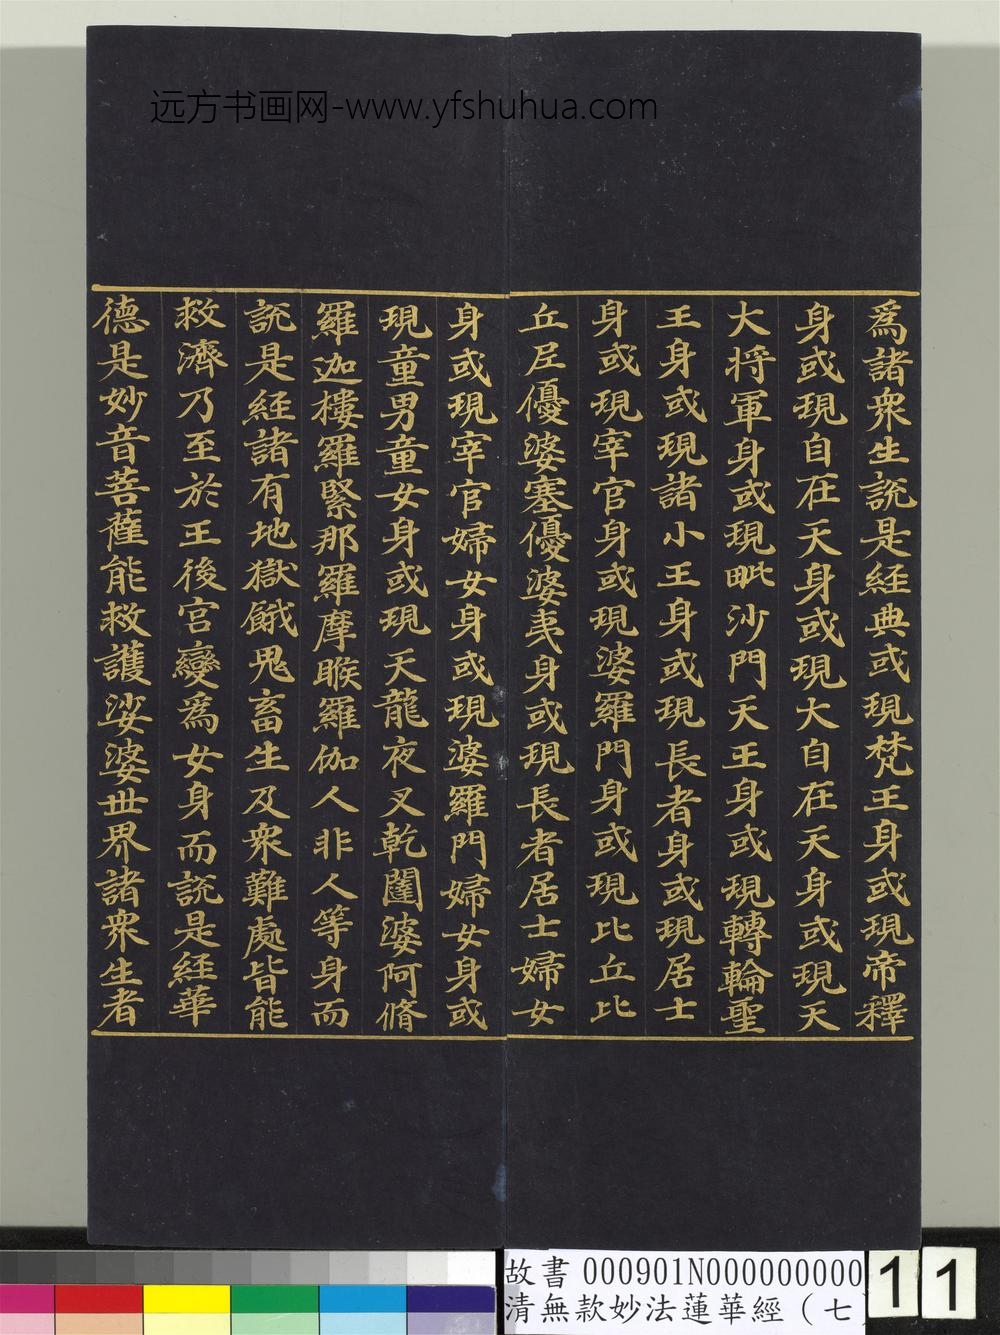 远方书画网-www.yfshuhua.com
爲諸衆生說是經典或現梵王身或現帝釋
身或現自在天身或現大自在天身或現天
大將軍身或現毗沙門天王身或現轉輪聖
王身或現諸小王身或現長者身或現居士
身或現宰官身或現婆羅門身或現比丘比
丘尼優婆塞優婆夷身或現長者居士婦女
身或現宰官婦女身或現婆羅門婦女身或
現童男童女身或現天龍夜叉乾闥婆阿脩
羅迦樓羅緊那羅摩睺羅伽人非人等身而
說是經諸有地獄餓鬼畜生及衆難處皆能
救濟乃至於王後宮變爲女身而說是經華
德是妙音菩薩能救護娑婆世界諸衆生者
故書 000901N000000000
清無款妙法蓮華經（七
11